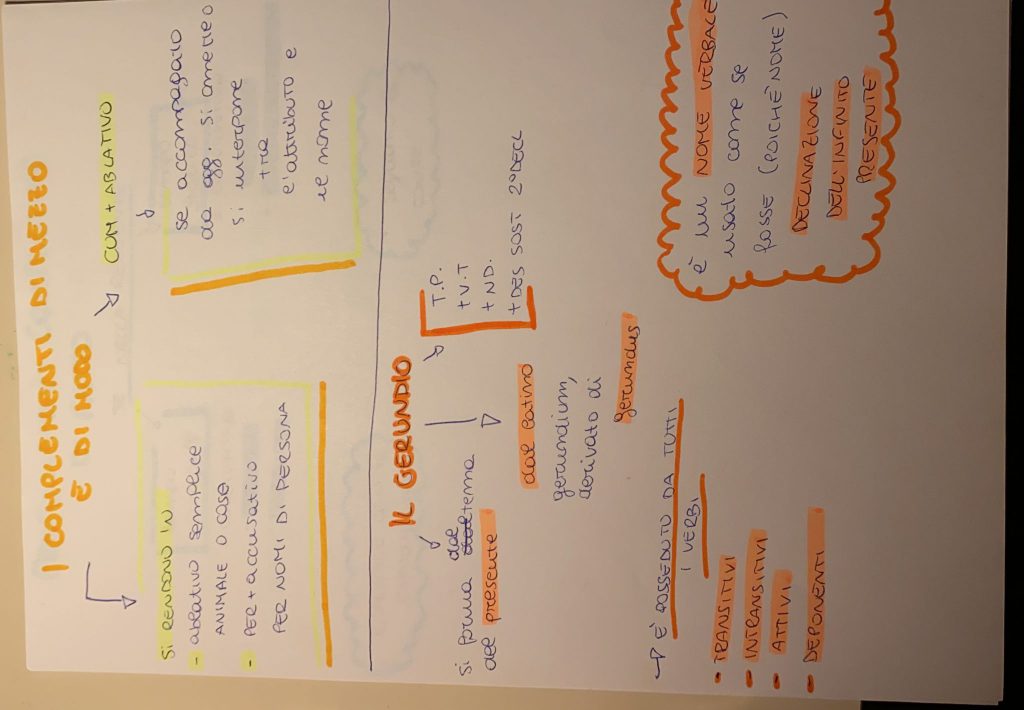 I COMPLEMENTI DI MEZZO
E DI MODO
SI RENDONO IN
- ablativo semplice
ANIMALE O COSE
- PER + accusativo
PER NOMI DI PERSONA
CUM + ABLATIVO
se accompagnato
da agg. si omette o
si interpone
tra
l'attributo e
il nome
IL GERUNDIO
si forma dal tema
del presente
T.P.
+ V.T
+ ND.
+ DES SOST 2°DECL
dal latino
gerundium,
derivato di
gerundus
→ È POSSEDUTO DA TUTTI
I VERBI
- TRANSITIVI
- INTRANSITIVI
- ATTIVI
- DEPONENTI
è un NOME VERBALE
usato come se
fosse (POICHÈ NOME)
DECLINAZIONE
DELL'INFINITO
PRESENTE